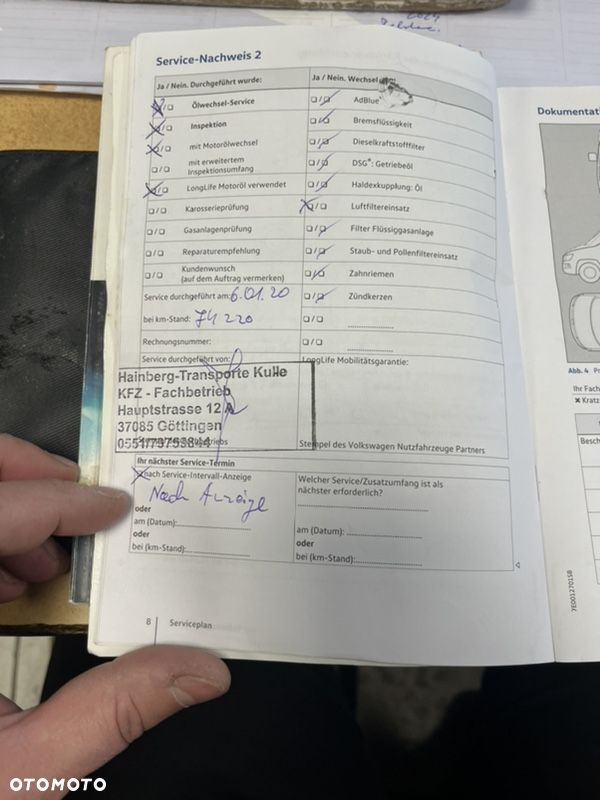 2024
Service-Nachweis 2
Ja / Nein. Durchgeführt wurde:
Ja / Nein. Wechsel
Ölwechsel-Service
AdBlue
Inspektion
Bremsflüssigkeit
mit Motorölwechsel
Dieselkraftstofffilter
mit erweitertem
Inspektionsumfang
DSG®: Getriebeöl
LongLife Motoröl verwendet
Haldexkupplung: Öl
Karosserieprüfung
Luftfiltereinsatz
Gasanlagenprüfung
Filter Flüssiggasanlage
Reparaturempfehlung
Staub- und Pollenfiltereinsatz
Kundenwunsch
(auf dem Auftrag vermerken)
Zahnriemen
Service durchgeführt am: 6.01.20
Zündkerzen
bei km-Stand: 74 220
Rechnungsnummer:
Service durchgeführt von:
LongLife Mobilitätsgarantie:
Hainberg-Transporte Kulle
KFZ - Fachbetrieb
Hauptstrasse 12 A
37085 Göttingen
Stempel des Volkswagen Nutzfahrzeuge Partners
Ihr nächster Service-Termin
nach Service-Intervall-Anzeige
Nach Anzeige
oder
am (Datum):
oder
bei (km-Stand):
Welcher Service/Zusatzumfang ist als
nächster erforderlich?
am (Datum):
oder
bei (km-Stand):
8 Serviceplan
Dokumentati
Abb. 4 Pr
Ihr Fach
Kratz
Besch
7E0012701SB
OTOMOTO